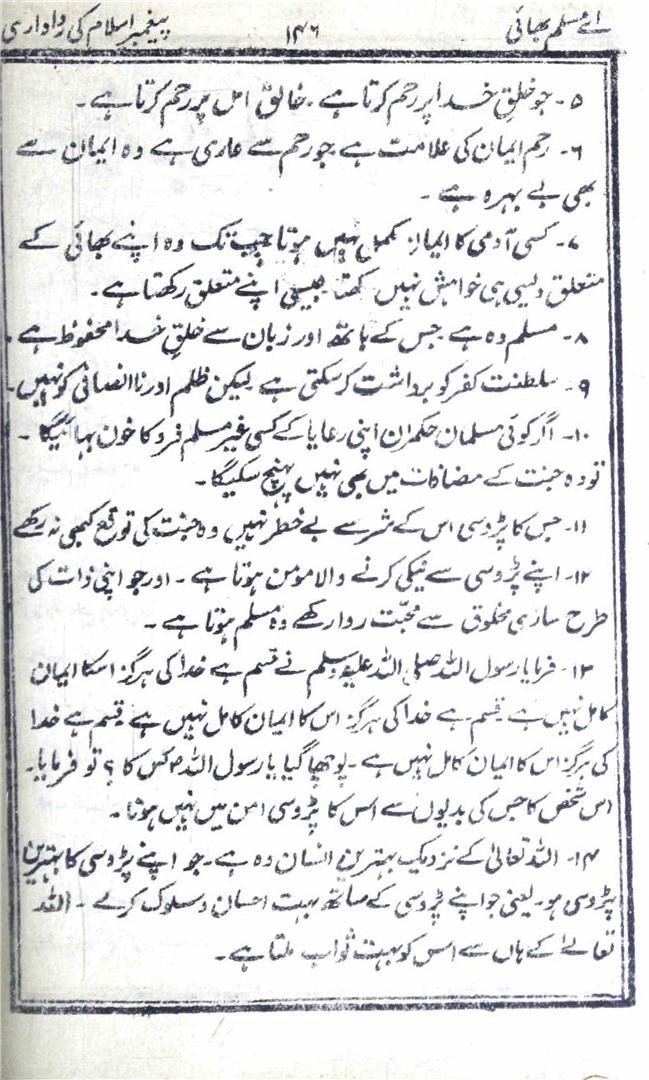 اے مسلم بھائی ۱۴۶ پیغمبر اسلام کی رواداری
۵- جو خلق خدا پر رحم کرتا ہے۔ خالق اس پر رحم کرتا ہے۔
۶- رحم ایمان کی علامت ہے جو رحم سے عاری ہے وہ ایمان سے
بھی بے بہرہ ہے۔
۷- کسی آدمی کا ایمان مکمل نہیں ہوتا جب تک وہ اپنے بھائی کے
متعلق ویسی ہی خواہش نہیں رکھتا جیسی اپنے متعلق رکھتا ہے۔
۸- مسلم وہ ہے جس کے ہاتھ اور زبان سے خلق خدا محفوظ ہے۔
۹- سلطنت کفر کو برداشت کر سکتی ہے لیکن ظلم اور ناانصافی کو نہیں۔
۱۰- اگر کوئی مسلمان حکمران اپنی رعایا کے کسی غیر مسلم فرد کا خون بہائیگا۔
تو وہ جنت کے مضافات میں بھی نہیں پہنچ سکیگا۔
۱۱- جس کا پڑوسی اس کے شر سے بے خطر نہیں وہ جنت کی توقع کبھی نہ رکھے
۱۲- اپنے پڑوسی سے نیکی کرنے والا مومن ہوتا ہے۔ اور جو اپنی ذات کی
طرح ساری مخلوق سے محبت روا رکھے وہ مسلم ہوتا ہے۔
۱۳- فرمایا رسول اللہ صلی اللہ علیہ وسلم نے قسم ہے خدا کی ہرگز اسکا ایمان
کامل نہیں ہے قسم ہے خدا کی ہرگز اس کا ایمان کامل نہیں ہے قسم ہے خدا
کی ہرگز اس کا ایمان کامل نہیں ہے۔ پوچھا گیا یا رسول اللہ ﷺ کس کا؟ تو فرمایا۔
اس شخص کا جس کی بدیوں سے اس کا پڑوسی امن میں نہیں ہوتا۔
۱۴- اللہ تعالیٰ کے نزدیک بہترین انسان وہ ہے۔ جو اپنے پڑوسی کا بہترین
پڑوسی ہو۔ یعنی جو اپنے پڑوسی کے ساتھ بہت احسان و سلوک کرے۔ اللہ
تعالےٰ کے ہاں سے اس کو بہت ثواب ملتا ہے۔